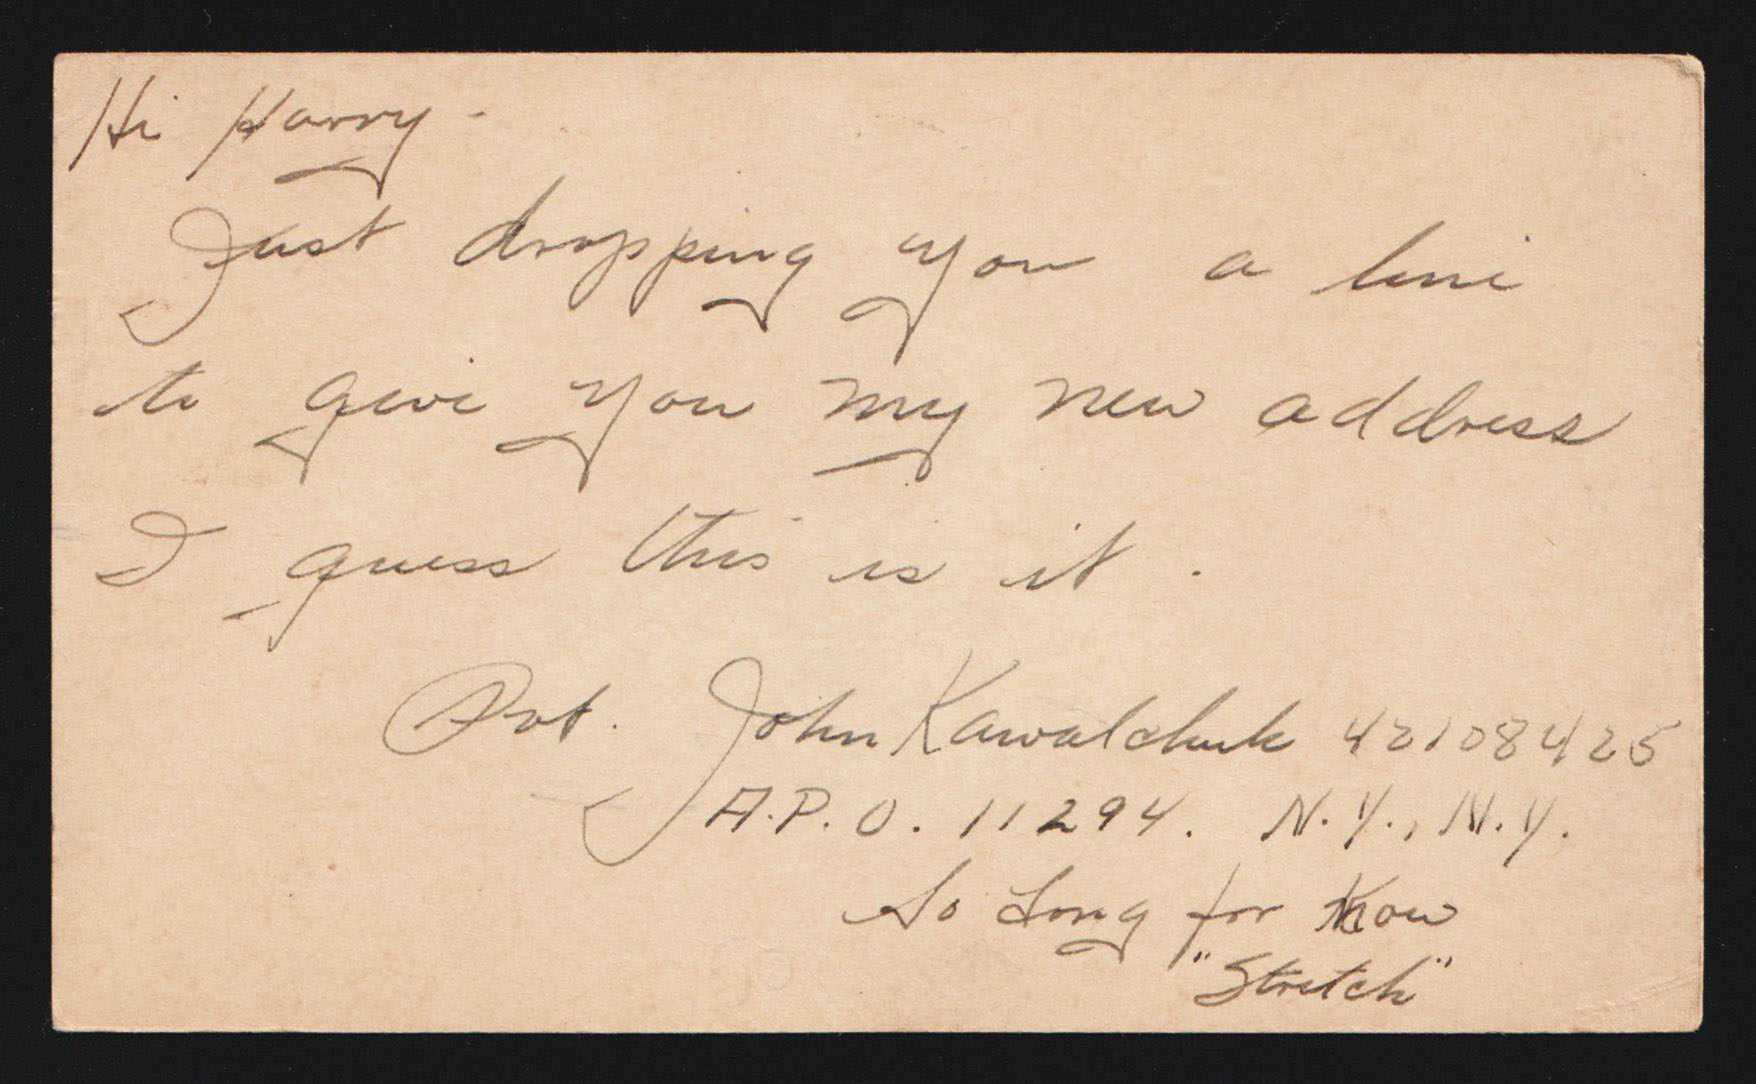 Hi Harry -
Just dropping you a line
to give you my new address
I guess this is it.
Pvt. John Kawalchuk 42108425
A.P.O. 11294. N.Y., N.Y.
So Long for Now
"Stretch"